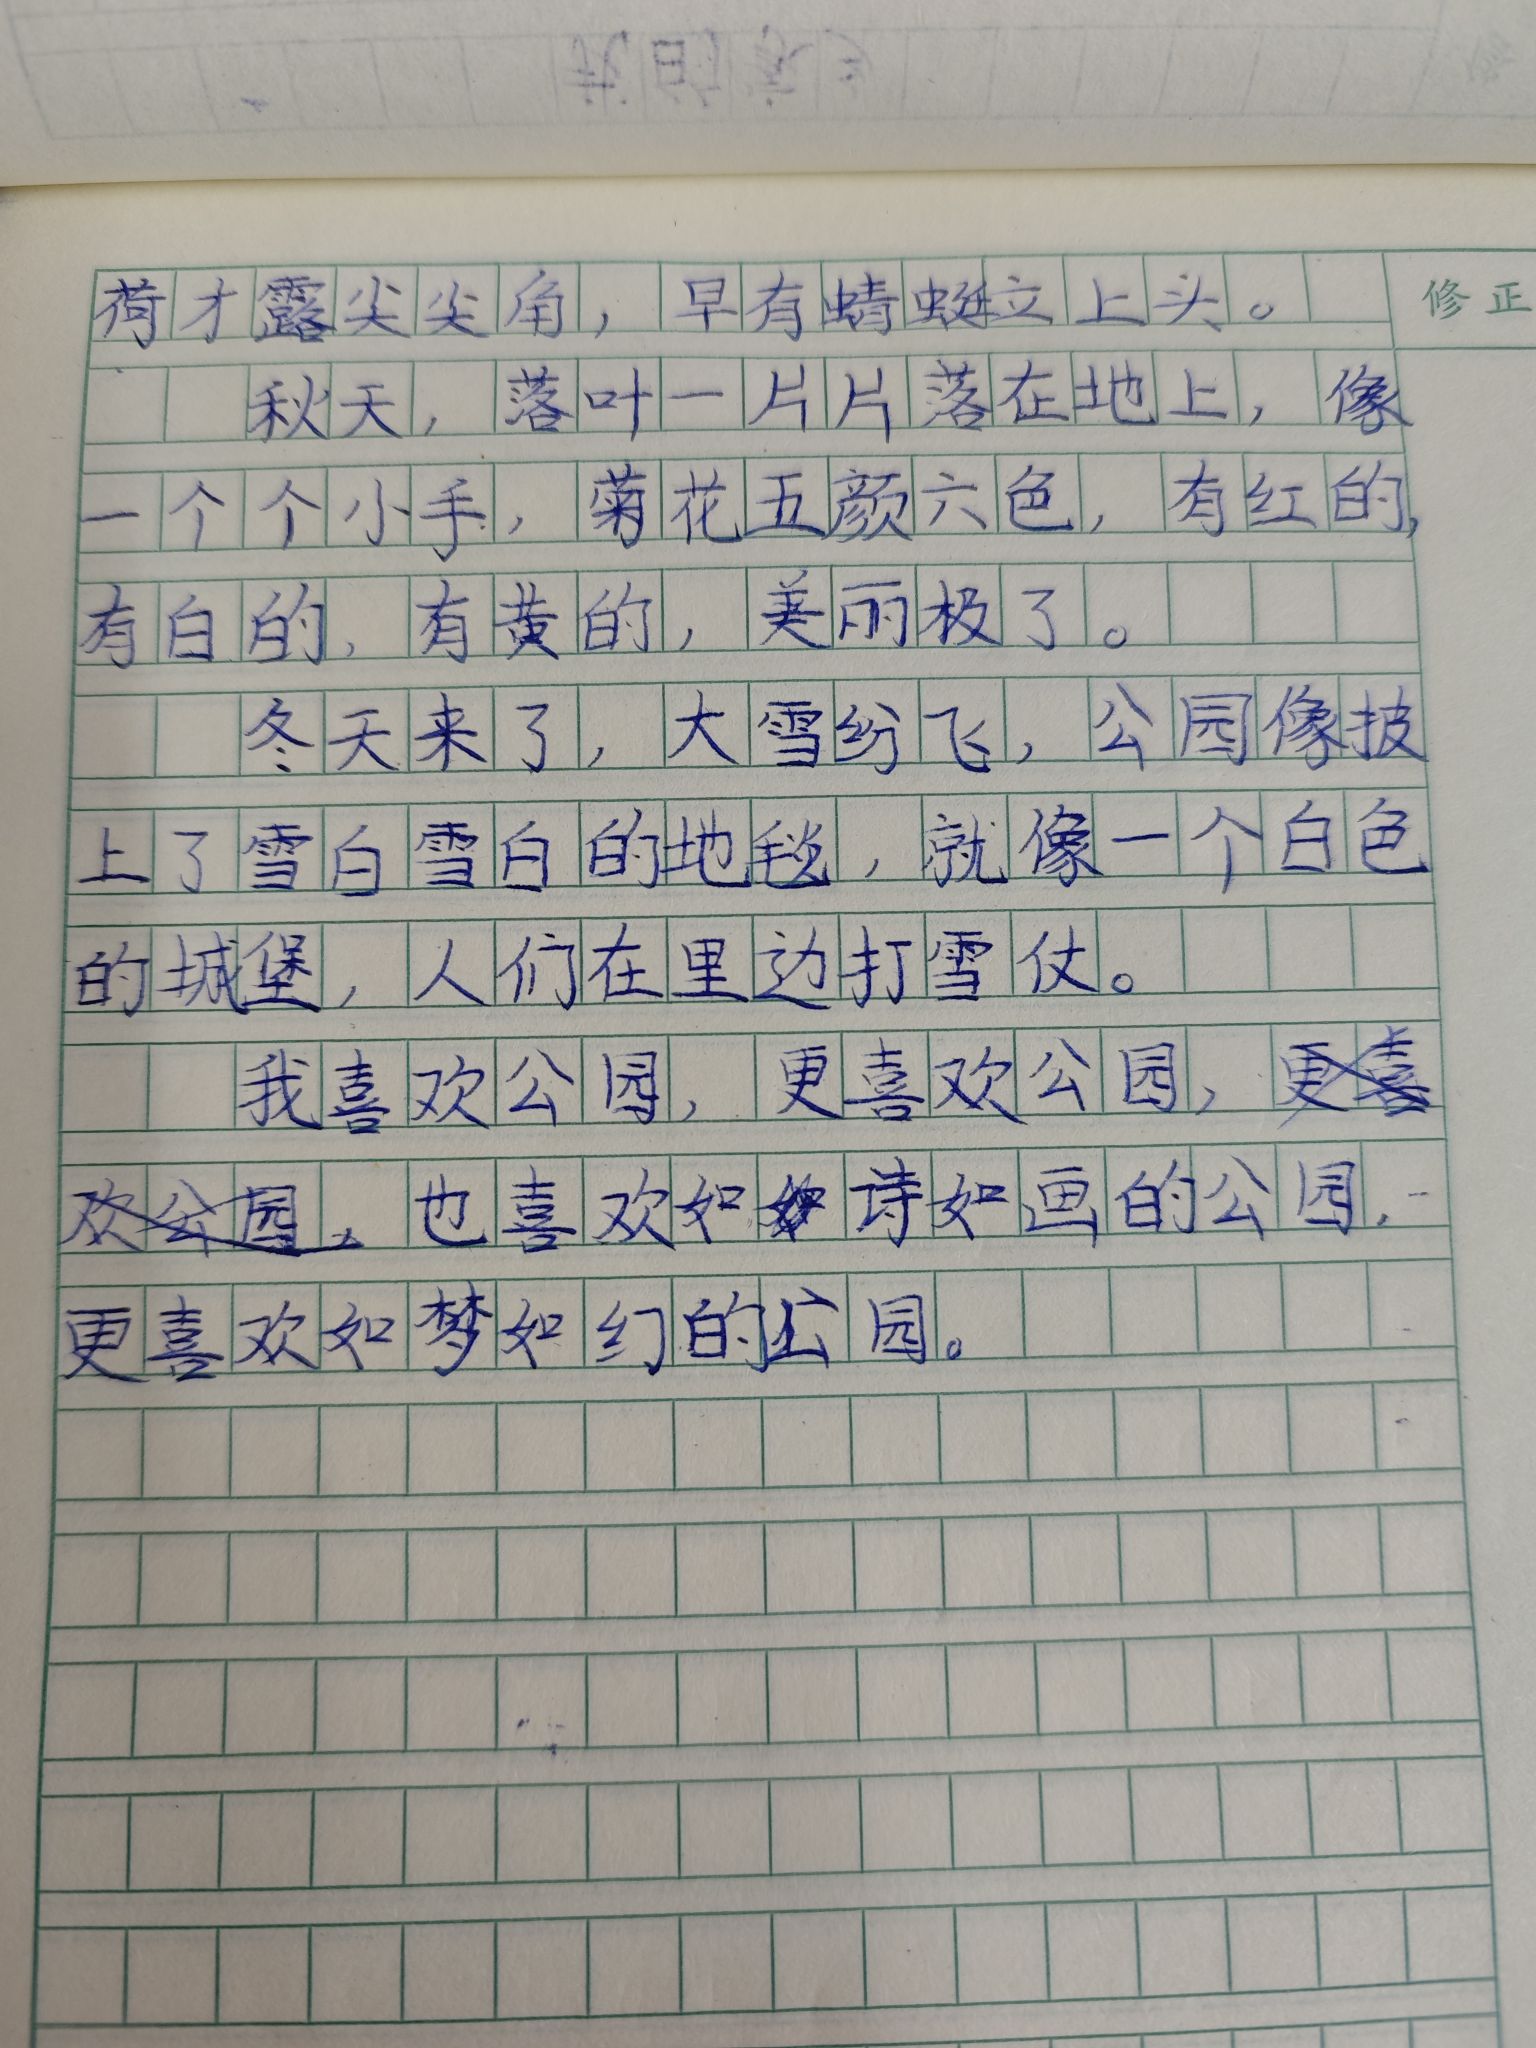 荷才露尖尖角，早有蜻蜓立上头。
修正
秋天，落叶一片片落在地上，像
一个个小手，菊花五颜六色，有红的，
有白的，有黄的，美丽极了。
冬天来了，大雪纷飞，公园像披
上了雪白雪白的地毯，就像一个白色
的城堡，人们在里边打雪仗。
我喜欢公园，更喜欢公园，更喜
欢公园，也喜欢如诗如画的公园，
更喜欢如梦如幻的公园。